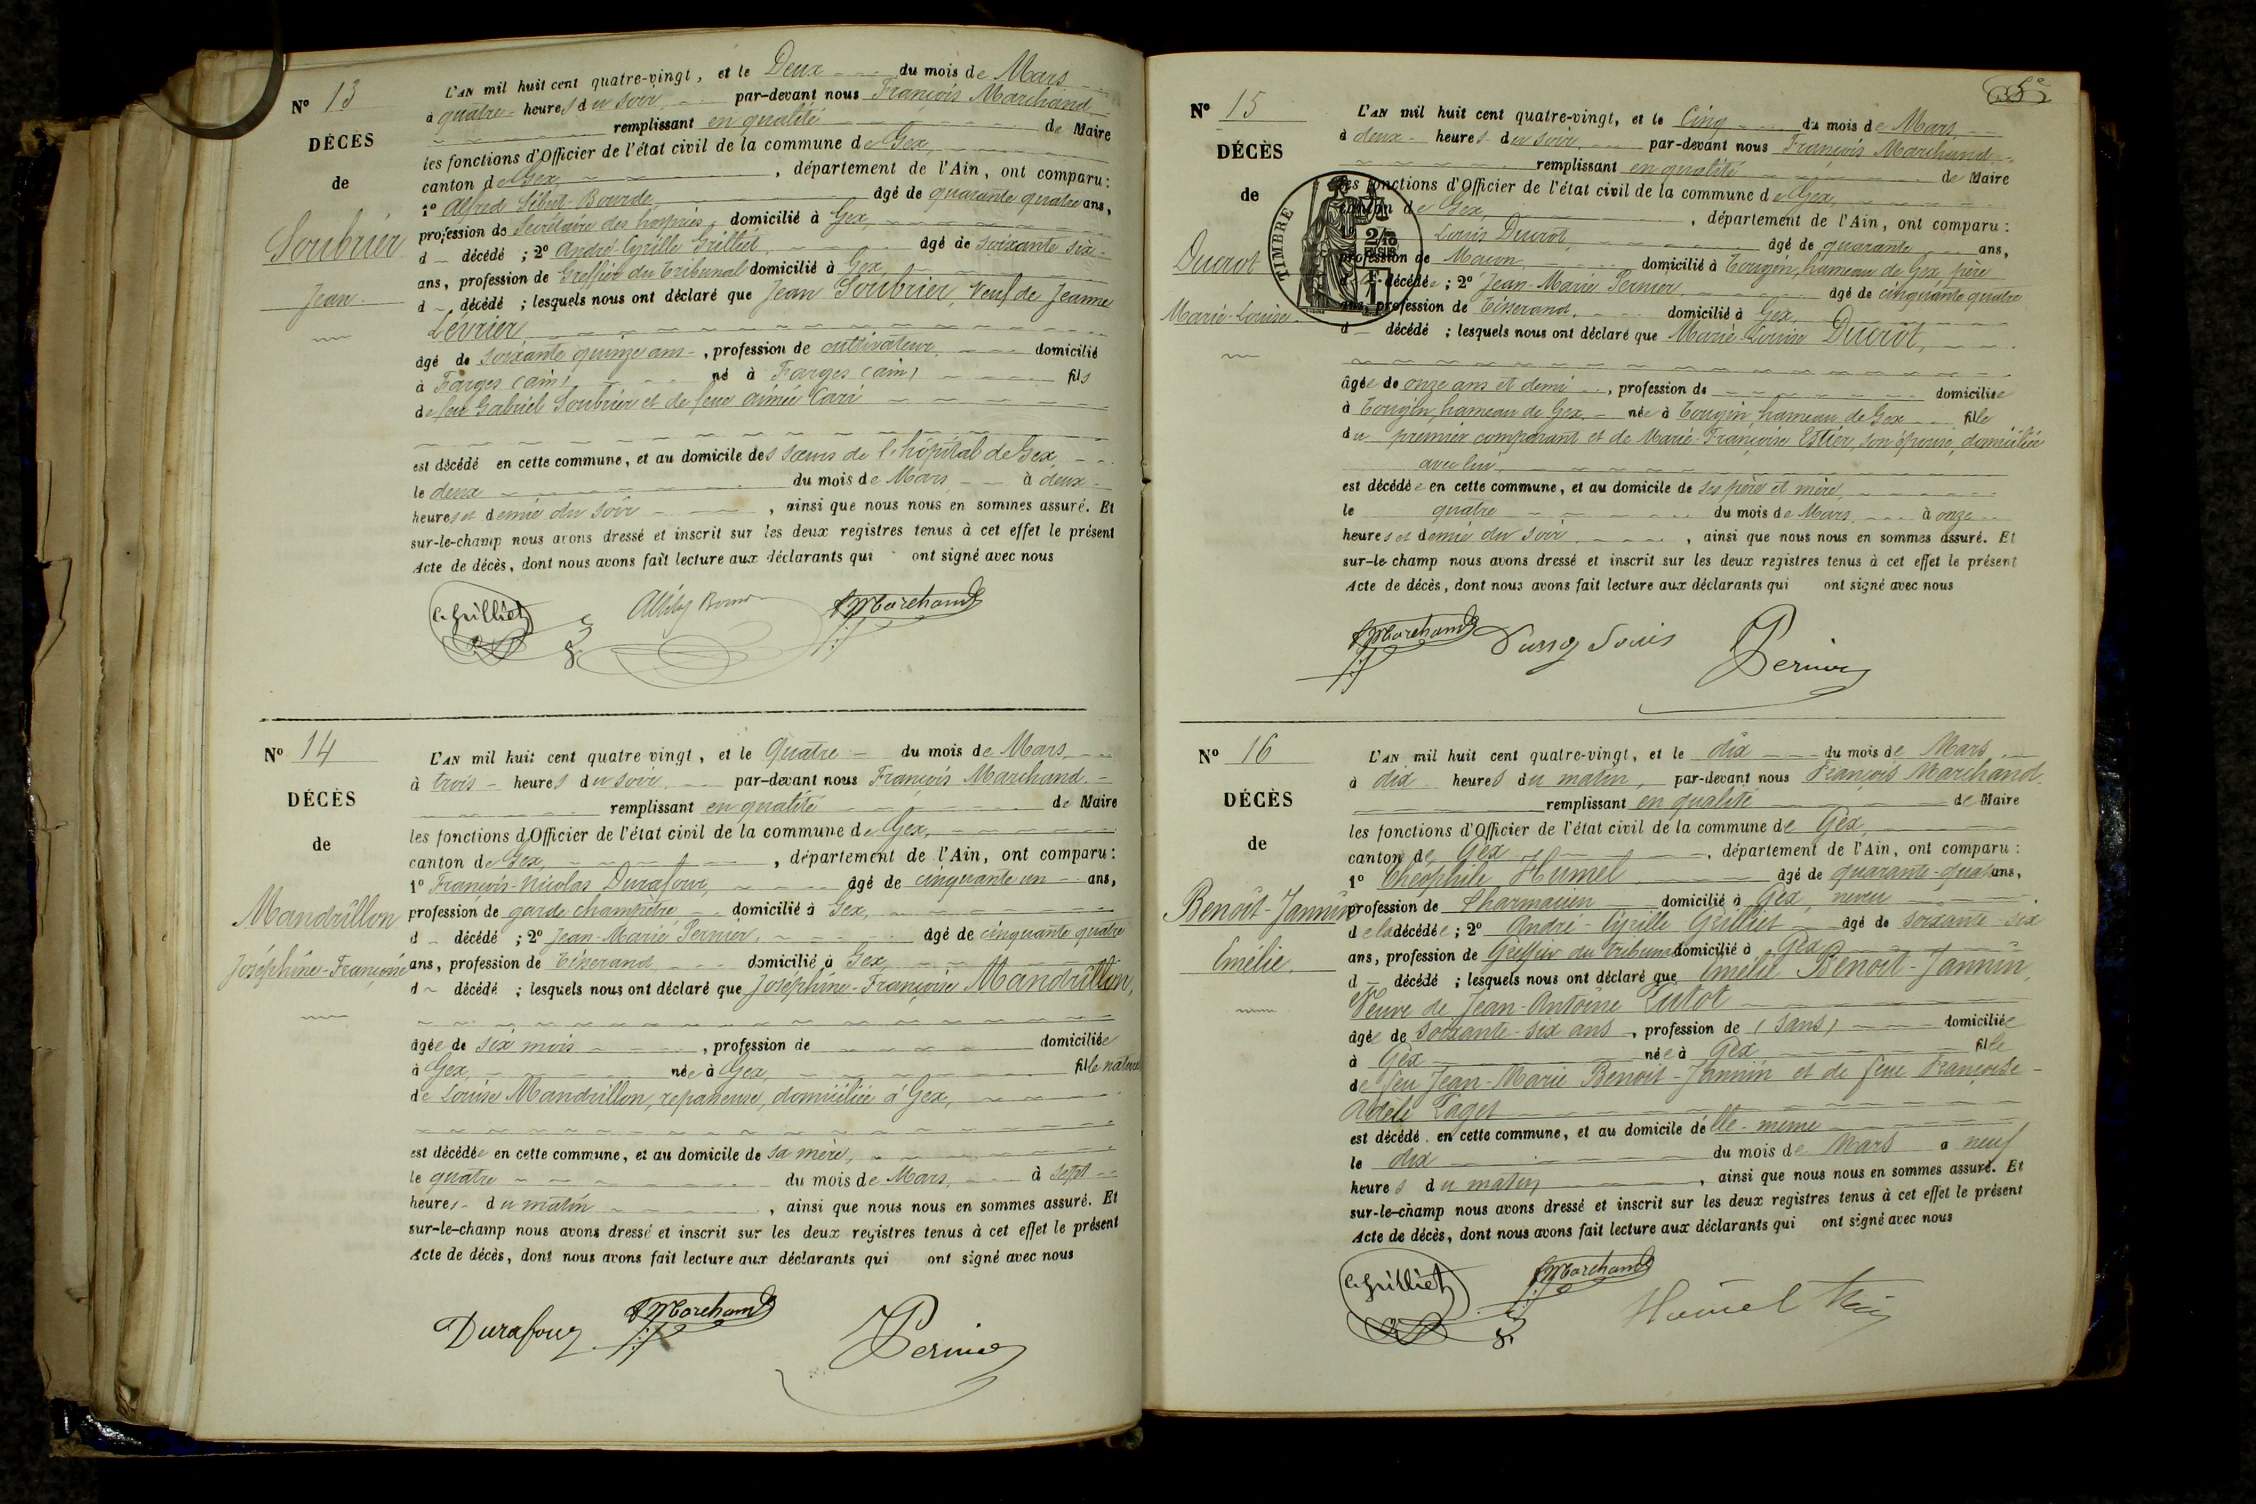 N° 13
DÉCÈS
de
Soubrier
Jean
L'AN mil huit cent quatre-vingt, et le Deux du mois de Mars
à quatre heures du soir par-devant nous François Marchand
remplissant en qualité de Maire
les fonctions d'Officier de l'état civil de la commune de Gex
canton de Gex, département de l'Ain, ont comparu:
1° Alfred Sibut-Bourde, âgé de quarante quatre ans,
profession de Secrétaire des hospices, domicilié à Gex,
d décédé ; 2° André Cyrille Grilliet âgé de soixante six
ans, profession de Greffier du Tribunal domicilié à Gex
d décédé ; lesquels nous ont déclaré que Jean Soubrier, Veuf de Jeanne
Lévrier,
âgé de soixante quinze ans, profession de cultivateur, domicilié
à Farges (ain) né à Farges (ain) fils
de feu Gabriel Soubrier et de feue aimée Cari
est décédé en cette commune, et au domicile des sœurs de l'hôpital de Gex
le deux du mois de Mars à deux
heures et demie du soir, ainsi que nous nous en sommes assuré. Et
sur-le-champ nous avons dressé et inscrit sur les deux registres tenus à cet effet le présent
Acte de décès, dont nous avons fait lecture aux déclarants qui ont signé avec nous
C. Grilliet
F Marchand
N° 14
DÉCÈS
de
Mandrillon
Joséphine-Françoise
L'AN mil huit cent quatre vingt, et le Quatre du mois de Mars
à trois heures du soir par-devant nous François Marchand
remplissant en qualité de Maire
les fonctions d'Officier de l'état civil de la commune de Gex,
canton de Gex, département de l'Ain, ont comparu:
1° François-Nicolas Durafour, âgé de cinquante un ans,
profession de garde champêtre domicilié à Gex,
d décédé ; 2° Jean-Marie Pernier, âgé de cinquante quatre
ans, profession de Tisserand domicilié à Gex
d décédé ; lesquels nous ont déclaré que Joséphine-Françoise Mandrillon,
âgée de six mois, profession de domiciliée
à Gex, née à Gex, fille naturelle
de Louise Mandrillon, repasseuse, domiciliée à Gex,
est décédée en cette commune, et au domicile de sa mère,
le quatre du mois de Mars, à sept
heures du matin, ainsi que nous nous en sommes assuré. Et
sur-le-champ nous avons dressé et inscrit sur les deux registres tenus à cet effet le présent
Acte de décès, dont nous avons fait lecture aux déclarants qui ont signé avec nous
Durafour
F Marchand
Pernier
5e
N° 15
DÉCÈS
de
Ducrot
Marie-Louise
TIMBRE
2/10
EN SUS
1F
L'AN mil huit cent quatre-vingt, et le Cinq du mois de Mars
à deux heures du soir, par-devant nous François Marchand
remplissant en qualité de Maire
les fonctions d'Officier de l'état civil de la commune de Gex,
canton de Gex, département de l'Ain, ont comparu:
Louis Ducrot, âgé de quarante ans,
profession de Maçon domicilié à Tougin, hameau de Gex, père
décédée ; 2° Jean-Marie Pernier, âgé de cinquante quatre
ans, profession de Tisserand, domicilié à Gex,
d décédé ; lesquels nous ont déclaré que Marie-Louise Ducrot,
âgée de onze ans et demi, profession de domiciliée
à Tougin, hameau de Gex, née à Tougin, hameau de Gex fille
du premier comparant et de Marie-Françoise Estier, son épouse, domiciliée
avec lui,
est décédée en cette commune, et au domicile de ses père et mère,
le quatre du mois de Mars, à onze
heures et demie du soir, ainsi que nous nous en sommes assuré. Et
sur-le-champ nous avons dressé et inscrit sur les deux registres tenus à cet effet le présent
Acte de décès, dont nous avons fait lecture aux déclarants qui ont signé avec nous
F Marchand
Louis
Pernier
N° 16
DÉCÈS
de
Benoit-Jannin
Emélie
L'AN mil huit cent quatre-vingt, et le dix du mois de Mars
à dix heures du matin, par-devant nous François Marchand
remplissant en qualité de Maire
les fonctions d'Officier de l'état civil de la commune de Gex
canton de Gex, département de l'Ain, ont comparu:
1° Théophile Humel âgé de quarante-quatre ans,
profession de Pharmacien domicilié à Gex, neveu
de la décédée ; 2° André-Cyrille Grilliet âgé de soixante-six
ans, profession de Greffier du tribunal domicilié à Gex
d décédé ; lesquels nous ont déclaré que Emélie Benoit-Jannin,
Veuve de Jean-Antoine Lutot
âgée de soixante-six ans, profession de (sans) domiciliée
à Gex née à Gex fille
de feu Jean-Marie Benoit-Jannin et de feue Françoise
Adèle Paget
est décédé en cette commune, et au domicile d'elle-même
le dix du mois de Mars à neuf
heures du matin, ainsi que nous nous en sommes assuré. Et
sur-le-champ nous avons dressé et inscrit sur les deux registres tenus à cet effet le présent
Acte de décès, dont nous avons fait lecture aux déclarants qui ont signé avec nous
C. Grilliet
F Marchand